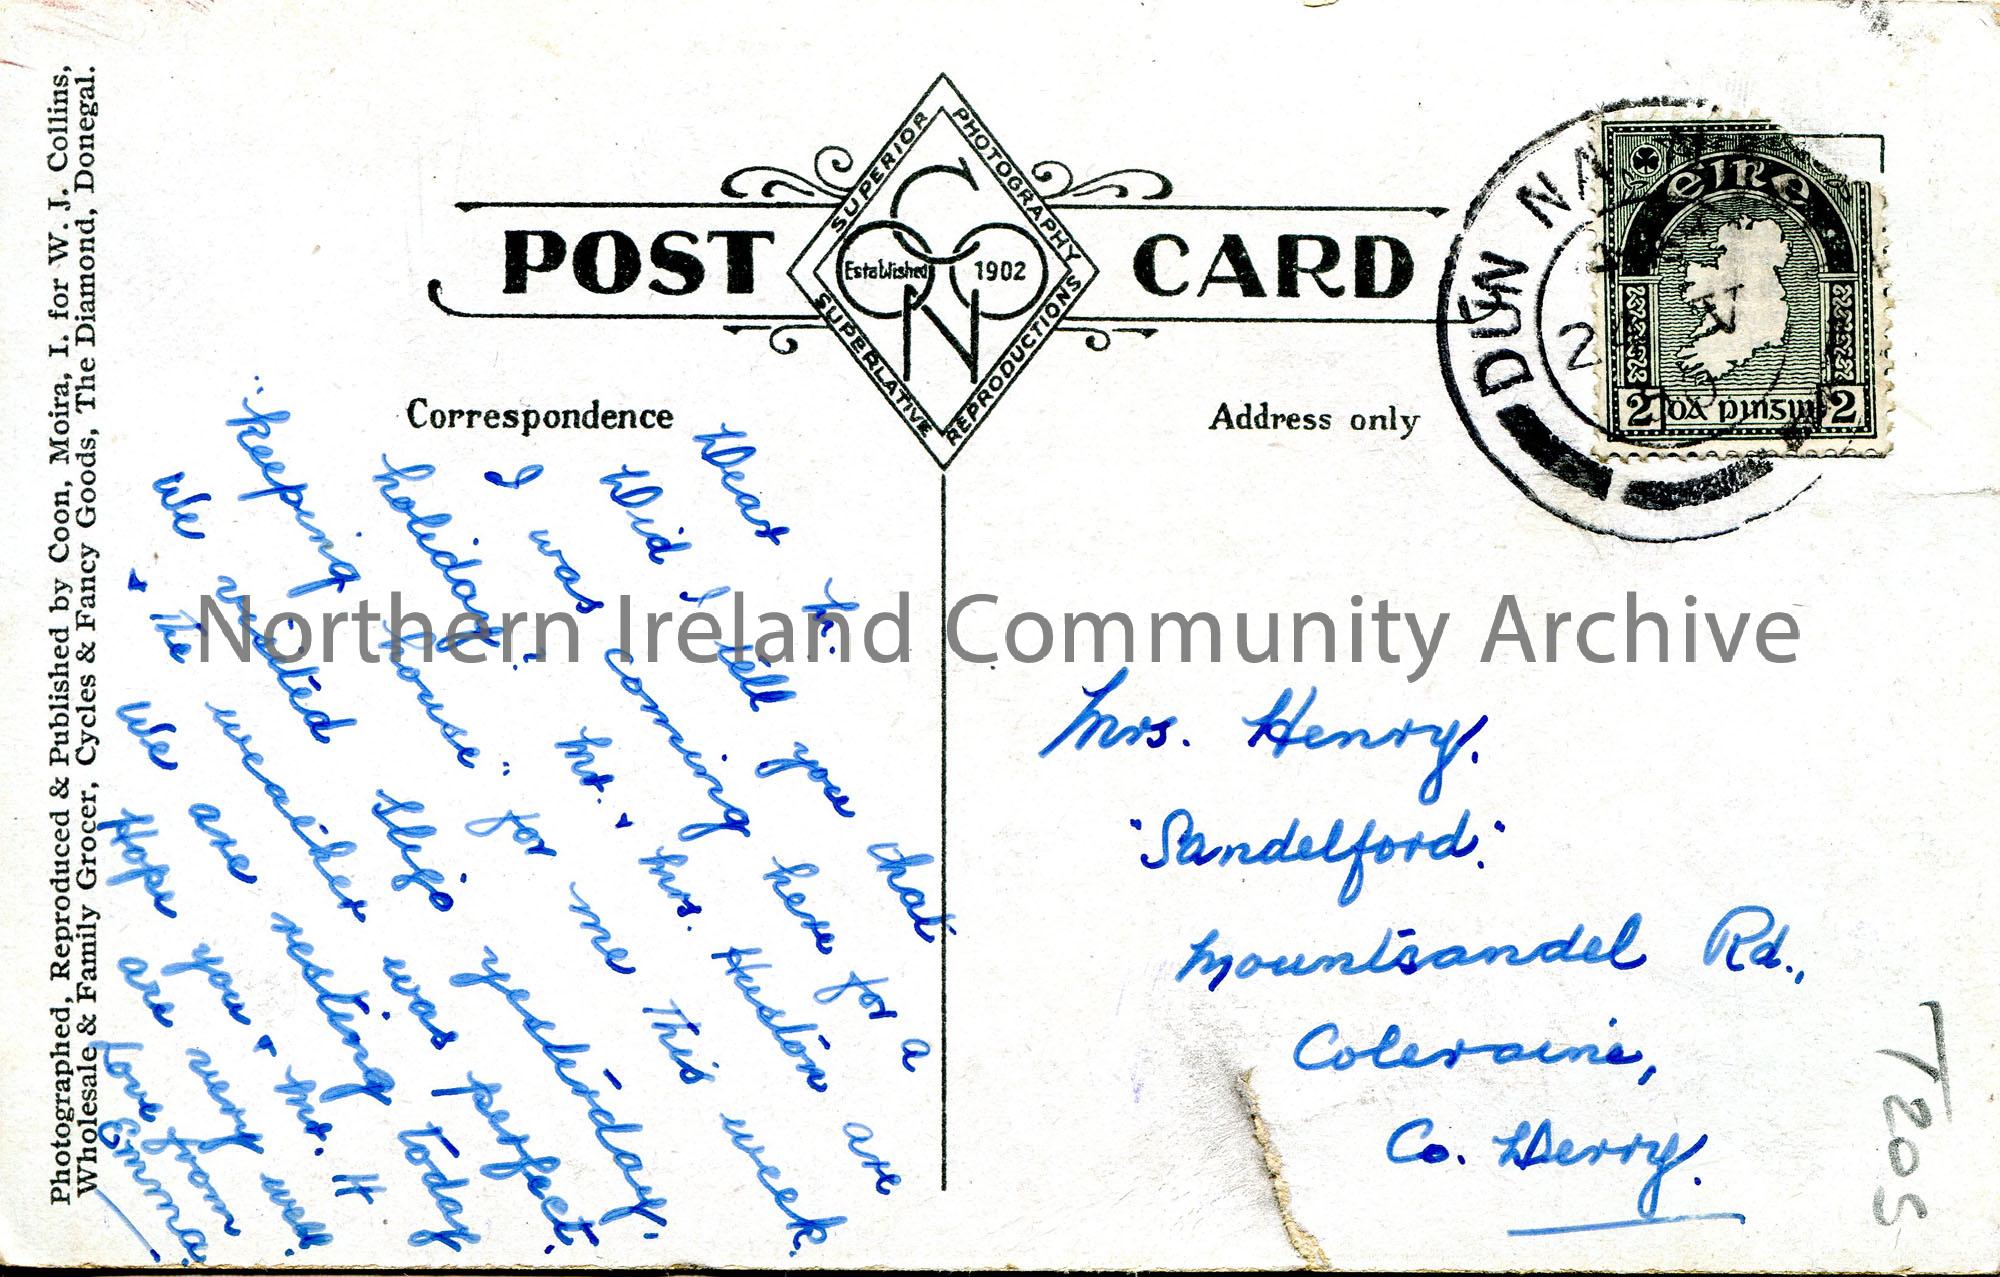 Photographed, Reproduced & Published by Coon, Moira, I. for W. J. Collins,
Wholesale & Family Grocer, Cycles & Fancy Goods, The Diamond, Donegal.
POST CARD
SUPERIOR PHOTOGRAPHY
SUPERLATIVE REPRODUCTIONS
Established 1902
CN
Correspondence
Address only
DÚN NA
2
éire
2 DÁ PINGIN 2
Dear M.
Did I tell you that
I was coming here for a
holiday? Mr. & Mrs. Huston are
"keeping house" for me this week.
We visited Sligo yesterday.
& the weather was perfect.
We are resting today
Hope you & Mr. H
are very well.
Love from
Emma.
Mrs. Henry.
"Sandelford."
Mountsandel Rd.,
Coleraine,
Co. Derry.
T205
Northern Ireland Community Archive